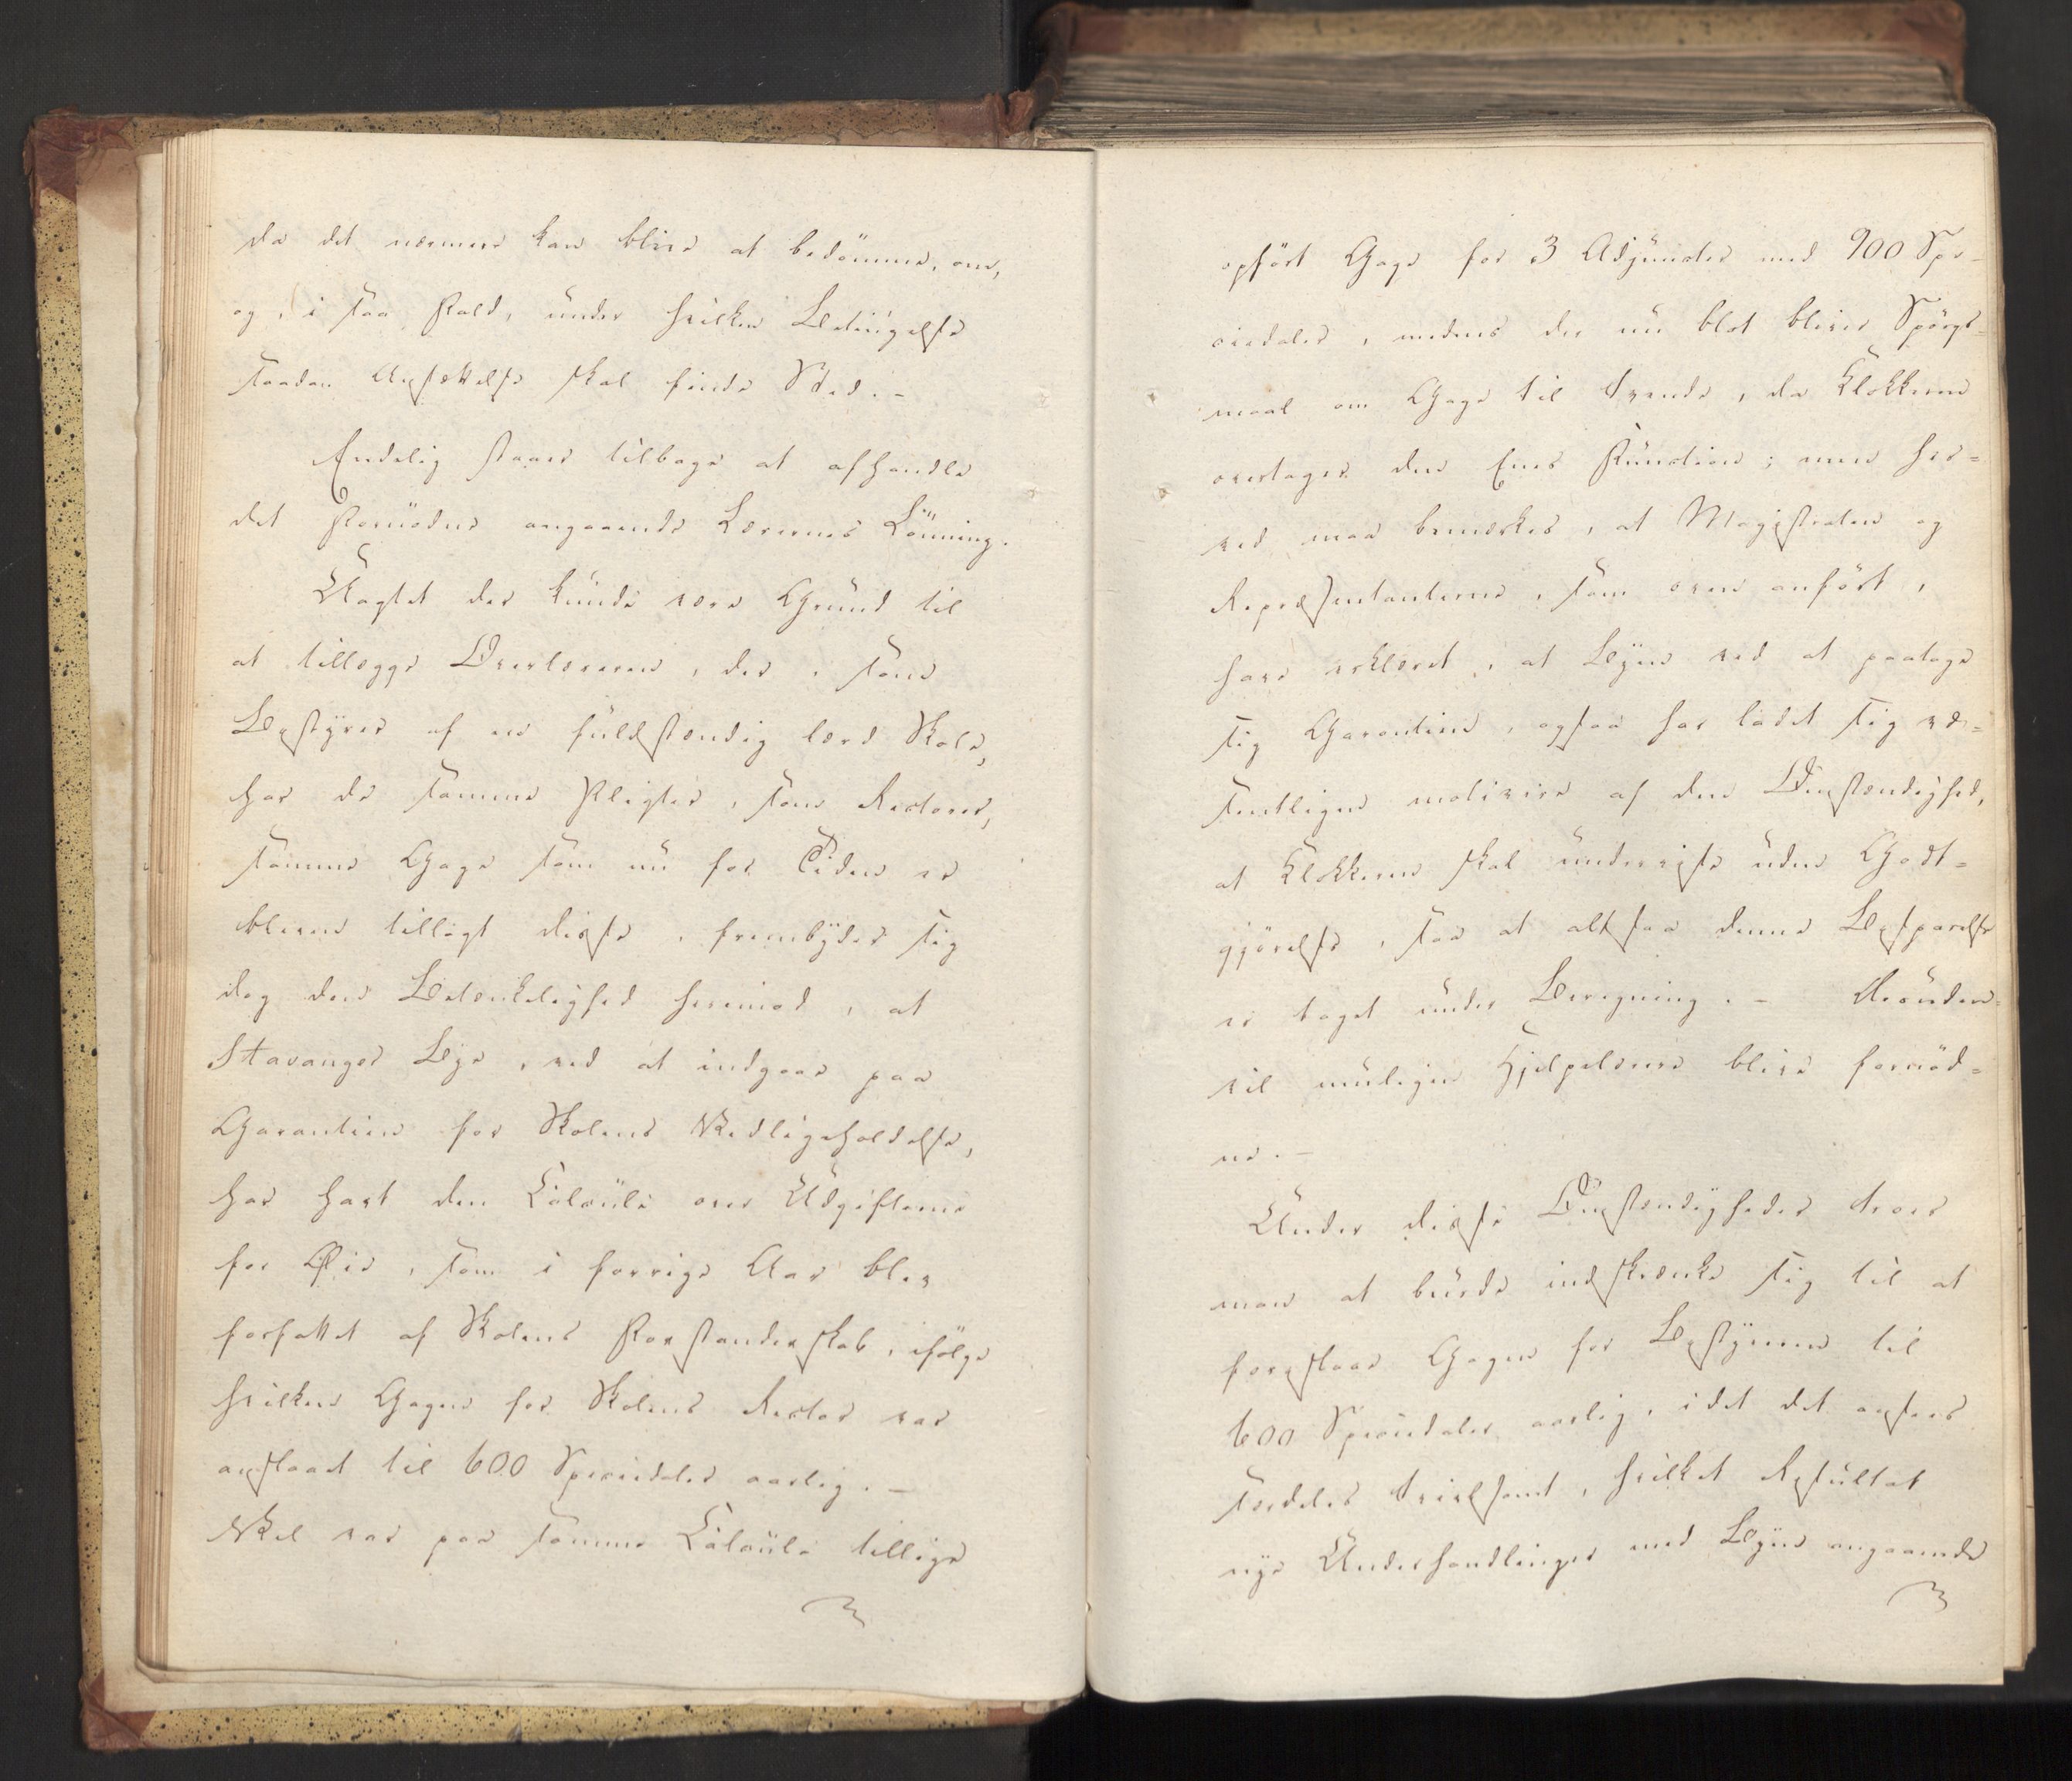 da det nærmere kan blive at bedömme, om,
og, i saa Fald, under hvilken Betingelse
saadan Ansættelse skal finde Sted. -
Endelig staaer tilbage at afhandle
det Fornödne angaaende Lærernes Lönning.
Uagtet der kunde være Grund til
at tillægge Overlæreren, der, som
Bestyrer af en fuldstændig lærd Skole,
har de samme Pligter, som Rectorer,
samme Gage som nu for Tiden er
bleven tillagt disse, frembyder sig
dog den Betænkelighed herimod, at
Stavanger Bye, ved at indgaae paa
Garantien for Skolens Vedligeholdelse,
har havt den Calcule over Udgifterne
for Øie, som i forrige Aar blev
forfattet af Skolens Forstanderskab, ifölge
hvilken Gagen for Skolens Rector var
anslaaet til 600 Speciedaler aarlig. -
Vel var paa samme Calcule tillige
opfört Gage for 3 Adjuncter med 900 Spe-
ciedaler, medens der nu blot bliver Spörgs-
maal om Gage til tvende, da Klokkeren
overtager den Enes Function; men her=
ved maa bemærkes, at Magistraten og
Repræsentanterne, som oven anfört,
have erklæret, at Byen ved at paatage
sig Garantien, ogsaa har ladet sig væ=
sentligen motivere af den Omstændighed,
at Klokkeren skal undervise uden Godt=
gjörelse, saa at altsaa denne Besparelse
er taget under Beregning. - Desuden
vil muligen Hjelpelærere blive fornöd=
ne. -
Under disse Omstændigheder troer
man at burde indskrænke sig til at
foreslaae Gagen for Bestyreren til
600 Speciedaler aarlig, idet det ansees
særdeles tvivlsomt, hvilket Resultat
nye Underhandlinger med Byen angaaende